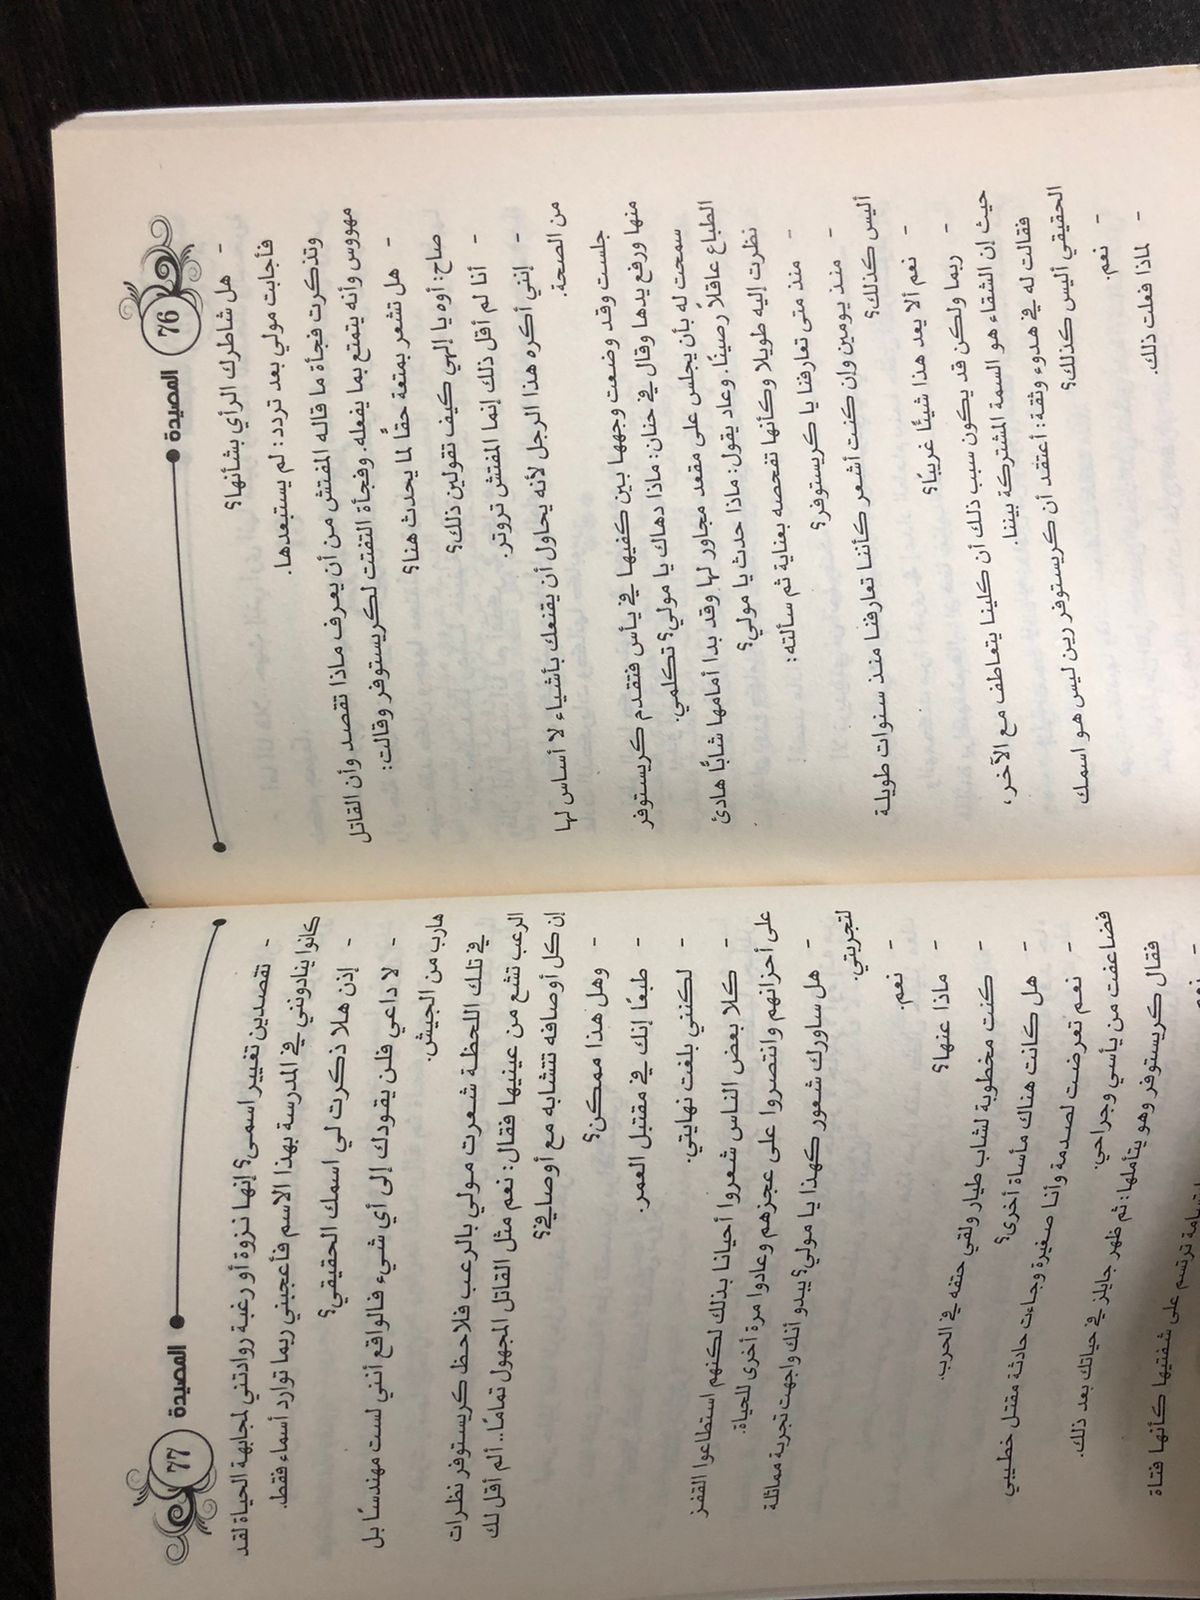 76
المصيدة
- هل شاطرك الرأي بشأنها؟
فأجابت مولي بعد تردد: لم يستبعدها.
وتذكرت فجأة ما قاله المفتش من أن يعرف ماذا تقصد وأن القاتل
مهووس وأنه يتمتع بما يفعله. وفجأة التفتت لكريستوفر وقالت:
- هل تشعر بمتعة حقاً لما يحدث هنا؟
صاح: أوه يا إلهي كيف تقولين ذلك؟
- أنا لم أقل ذلك إنما المفتش تروتر.
- إنني أكره هذا الرجل لأنه يحاول أن يقنعك بأشياء لا أساس لها
من الصحة.
جلست وقد وضعت وجهها بين كفيها في يأس فتقدم كريستوفر
منها ورفع يدها وقال في حنان: ماذا دهاك يا مولي؟ تكلمي.
سمحت له بأن يجلس على مقعد مجاور لها وقد بدا أمامها شابًا هادئ
الطباع عاقلاً رصينًا. وعاد يقول: ماذا حدث يا مولي؟
نظرت إليه طويلا وكأنها تفحصه بعناية ثم سألته:
- منذ متى تعارفنا يا كريستوفر؟
- منذ يومين وإن كنت أشعر كأننا تعارفنا منذ سنوات طويلة
أليس كذلك؟
- نعم ألا يعد هذا شيئًا غريبًا؟
- ربما ولكن قد يكون سبب ذلك أن كلينا يتعاطف مع الآخر،
حيث إن الشقاء هو السمة المشتركة بيننا.
فقالت له في هدوء وثقة: أعتقد أن كريستوفر رين ليس هو اسمك
الحقيقي أليس كذلك؟
- نعم.
- لماذا فعلت ذلك.
77
المصيدة
- تقصدين تغيير اسمى؟ إنها نزوة أو رغبة روادتني لمجابهة الحياة لقد
كانوا ينادونني في المدرسة بهذا الاسم فأعجبني ربما توارد أسماء فقط.
- إذن هلا ذكرت لي اسمك الحقيقي؟
- لا داعي فلن يقودك إلى أي شيء فالواقع أنني لست مهندسًا بل
هارب من الجيش.
في تلك اللحظة شعرت مولي بالرعب فلاحظ كريستوفر نظرات
الرعب تشع من عينيها فقال: نعم مثل القاتل المجهول تمامًا.. ألم أقل لك
إن كل أوصافه تتشابه مع أوصافي؟
- وهل هذا ممكن؟
- طبعًا إنك في مقتبل العمر.
- لكنني بلغت نهايتي.
- كلا بعض الناس شعروا أحيانا بذلك لكنهم استطاعوا القفز
على أحزانهم وانتصروا على عجزهم وعادوا مرة أخرى للحياة.
- هل ساورك شعور كهذا يا مولي؟ يبدو أنك واجهت تجربة مماثلة
لتجربتي.
- نعم.
- ماذا عنها؟
- كنت مخطوبة لشاب طيار ولقي حتفه في الحرب.
- هل كانت هناك مأساة أخرى؟
- نعم تعرضت لصدمة وأنا صغيرة وجاءت حادثة مقتل خطيبي
فضاعفت من يأسي وجراحي.
فقال كريستوفر وهو يتأملها: ثم ظهر جايلز في حياتك بعد ذلك.
- نعم ترتسم على شفتيها كأنها فتاة